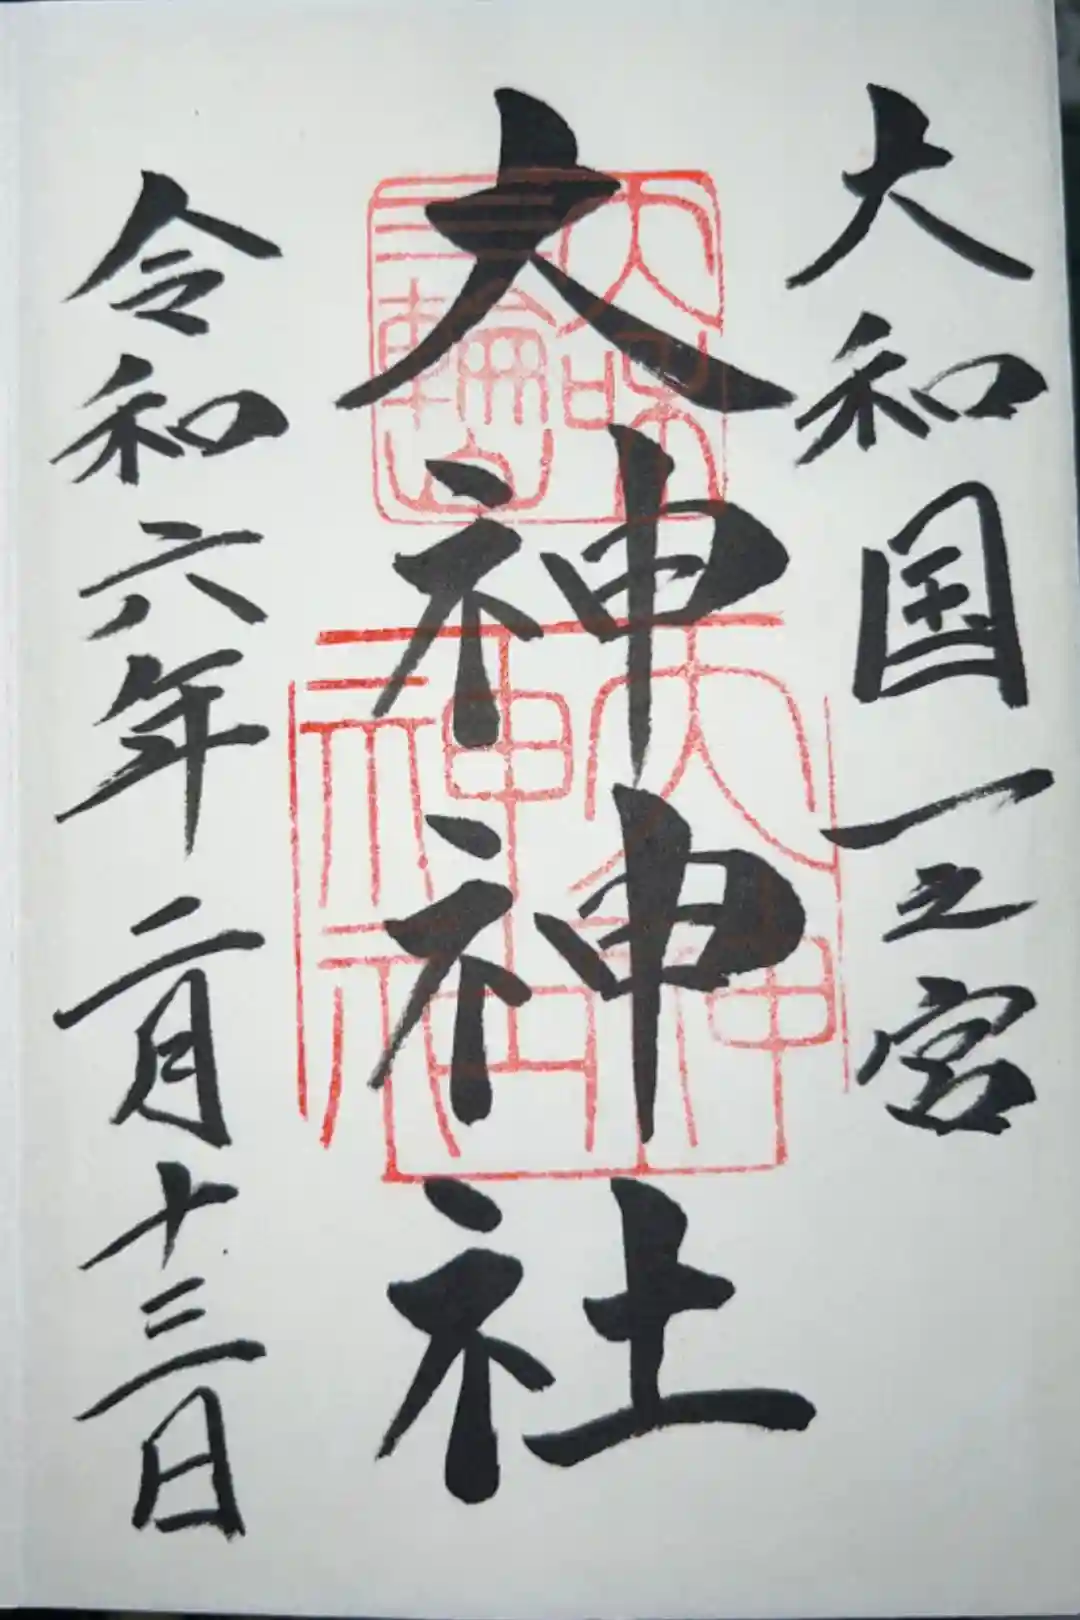 大和国一之宮
大神神社
令和六年二月十三日
大和
三輪山
大神
神社